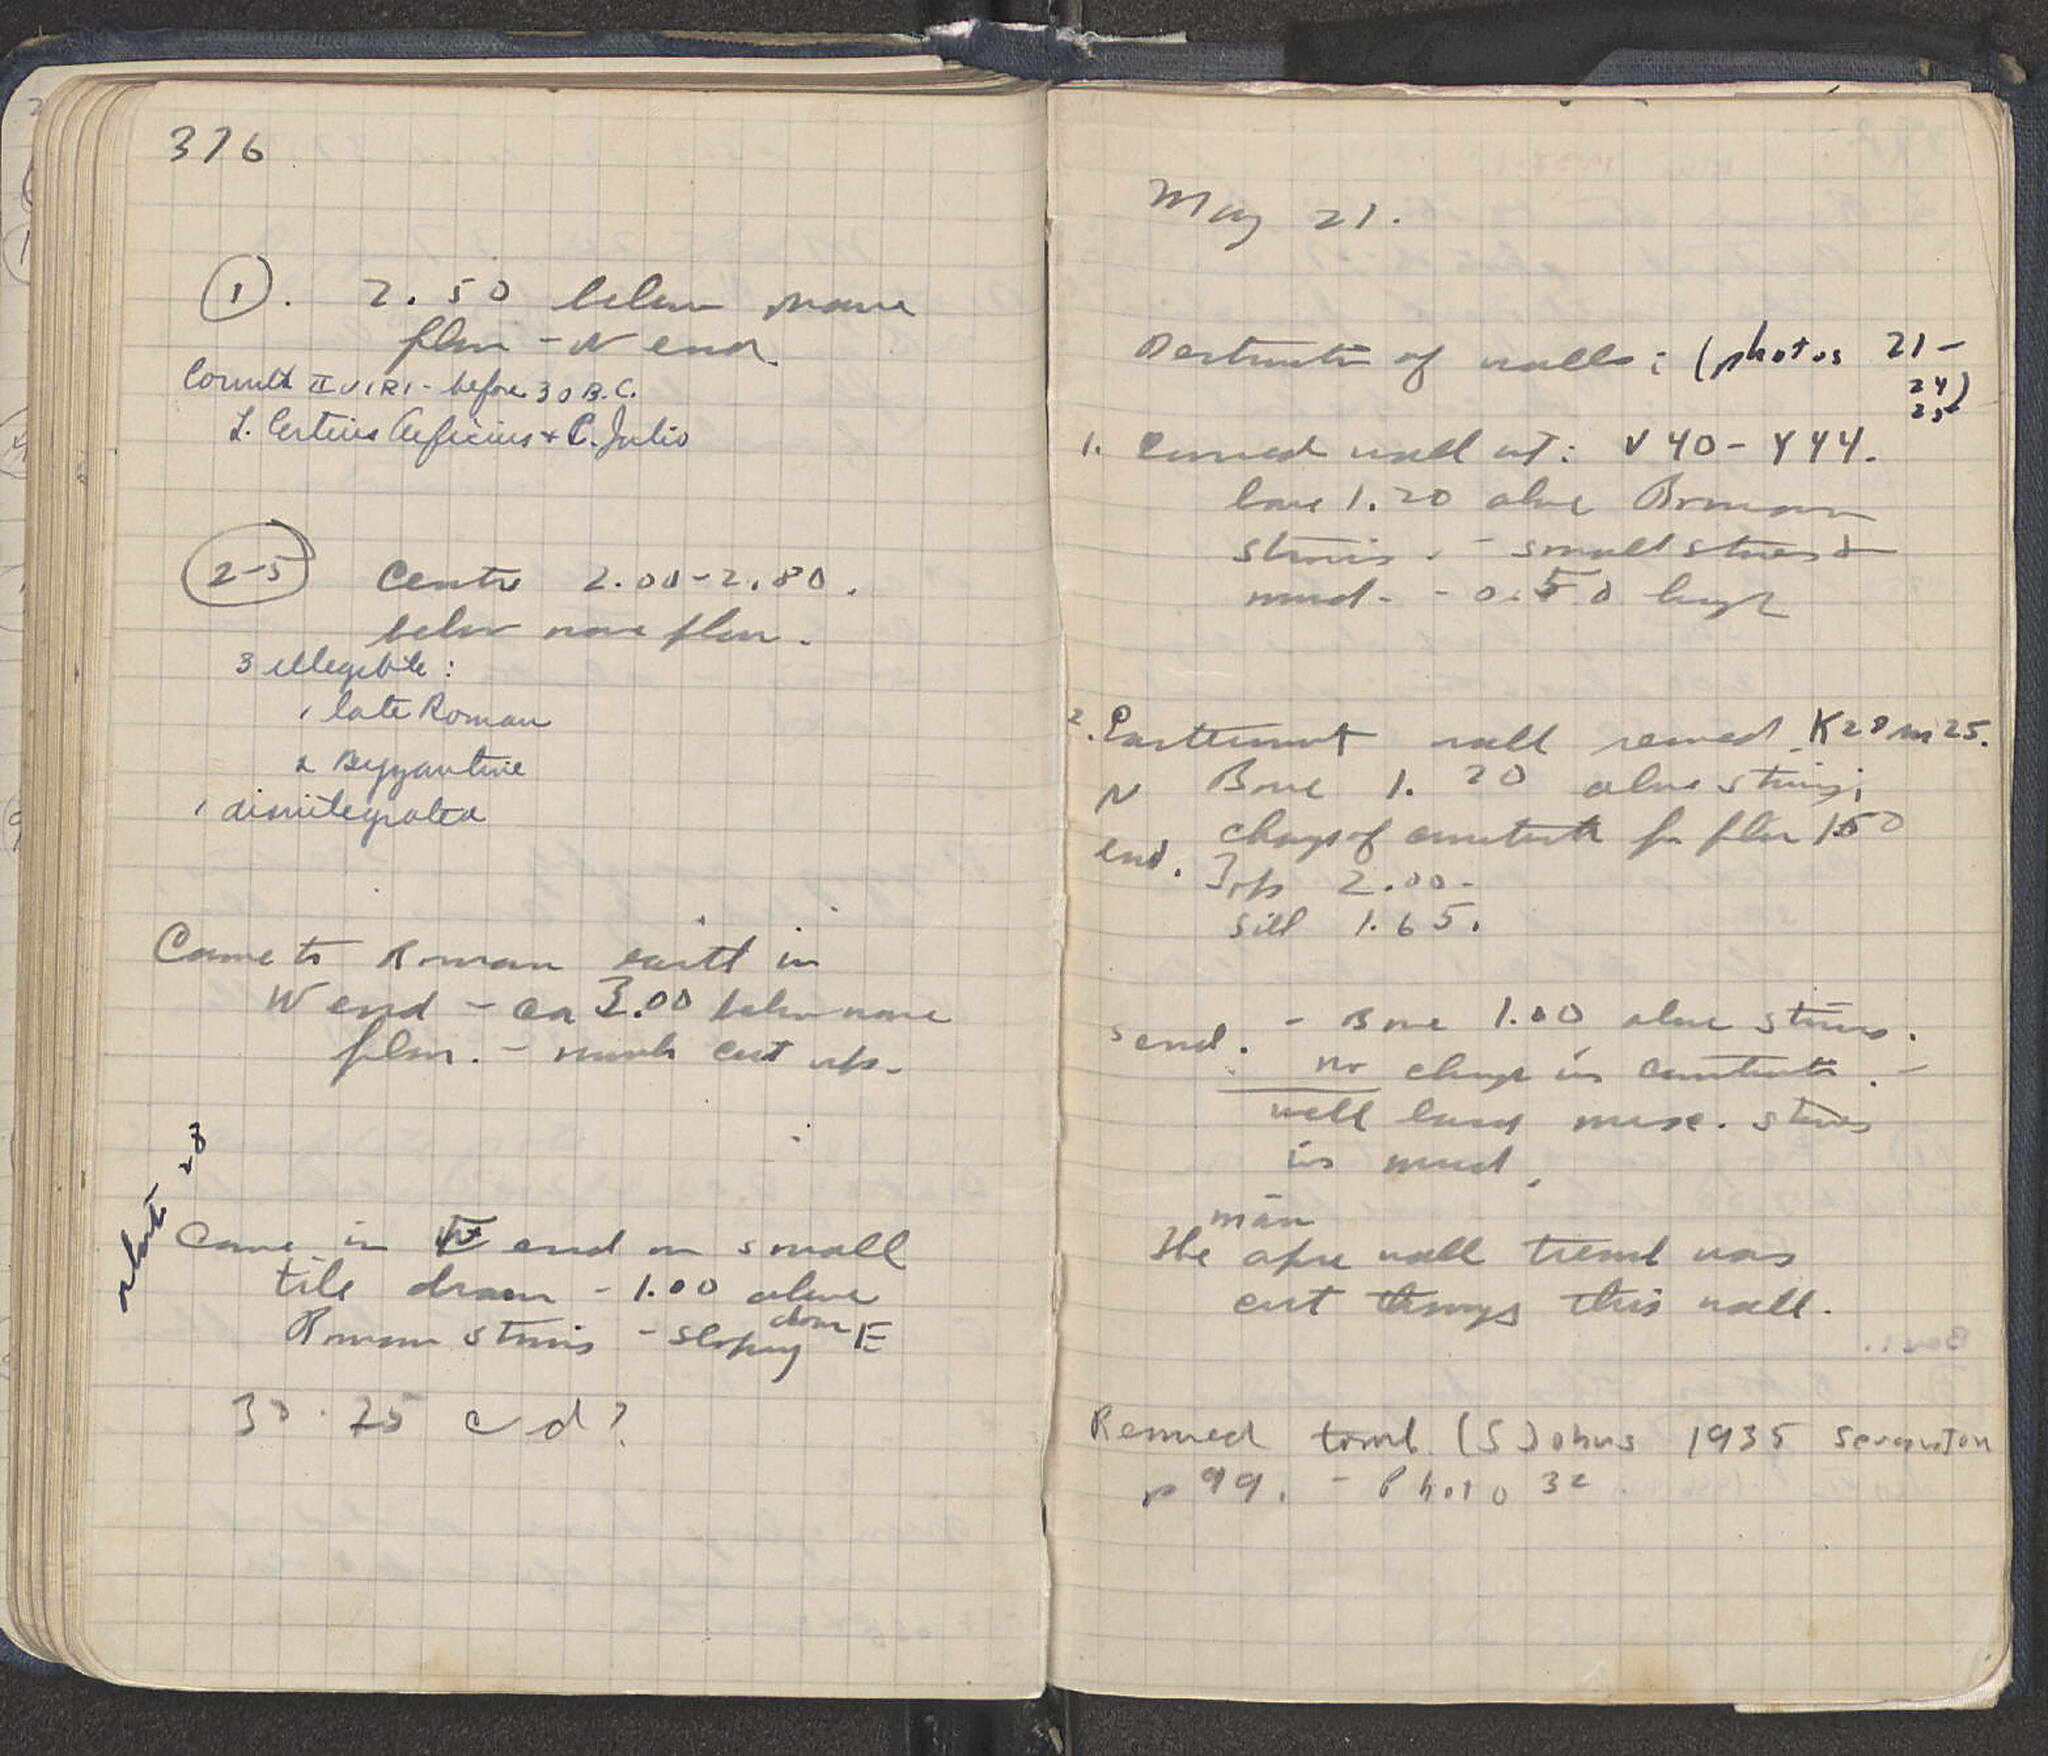 376
(1). 2.50 below nave
floor - N end
Corinth II VIRI - before 30 B.C.
L. Certius Aeficius + C. Julio
(2-5) Centre 2.00-2.80.
below nave floor.
3 illegible:
1 late Roman
2 Byzantine
1 disintegrated
Came to Roman earth in
W end - ca 3.00 below nave
floor. - much cut up.
photo 28
Came in W end on small
tile drain - 1.00 above
Roman stairs - sloping down E
30.25 c d?
May 21.
Destruction of walls: (photos 21-
24)
25
1. Curved wall at: V 40 - Y 44.
base 1.20 above Roman
stairs. - small stones &
mud. - 0.50 high
2. Easternmost wall removed K28 M25.
N end. Base 1.20 above stairs;
change of construction for floor 1.50
Top 2.00-
Sill 1.65.
S end. - Base 1.00 above stairs.
no change in construction. -
well laid misc. stones
in mud.
The main apse wall trench was
cut through this wall.
Removed tomb. (S) Johns 1935 Scranton
p 99. - Photo 32